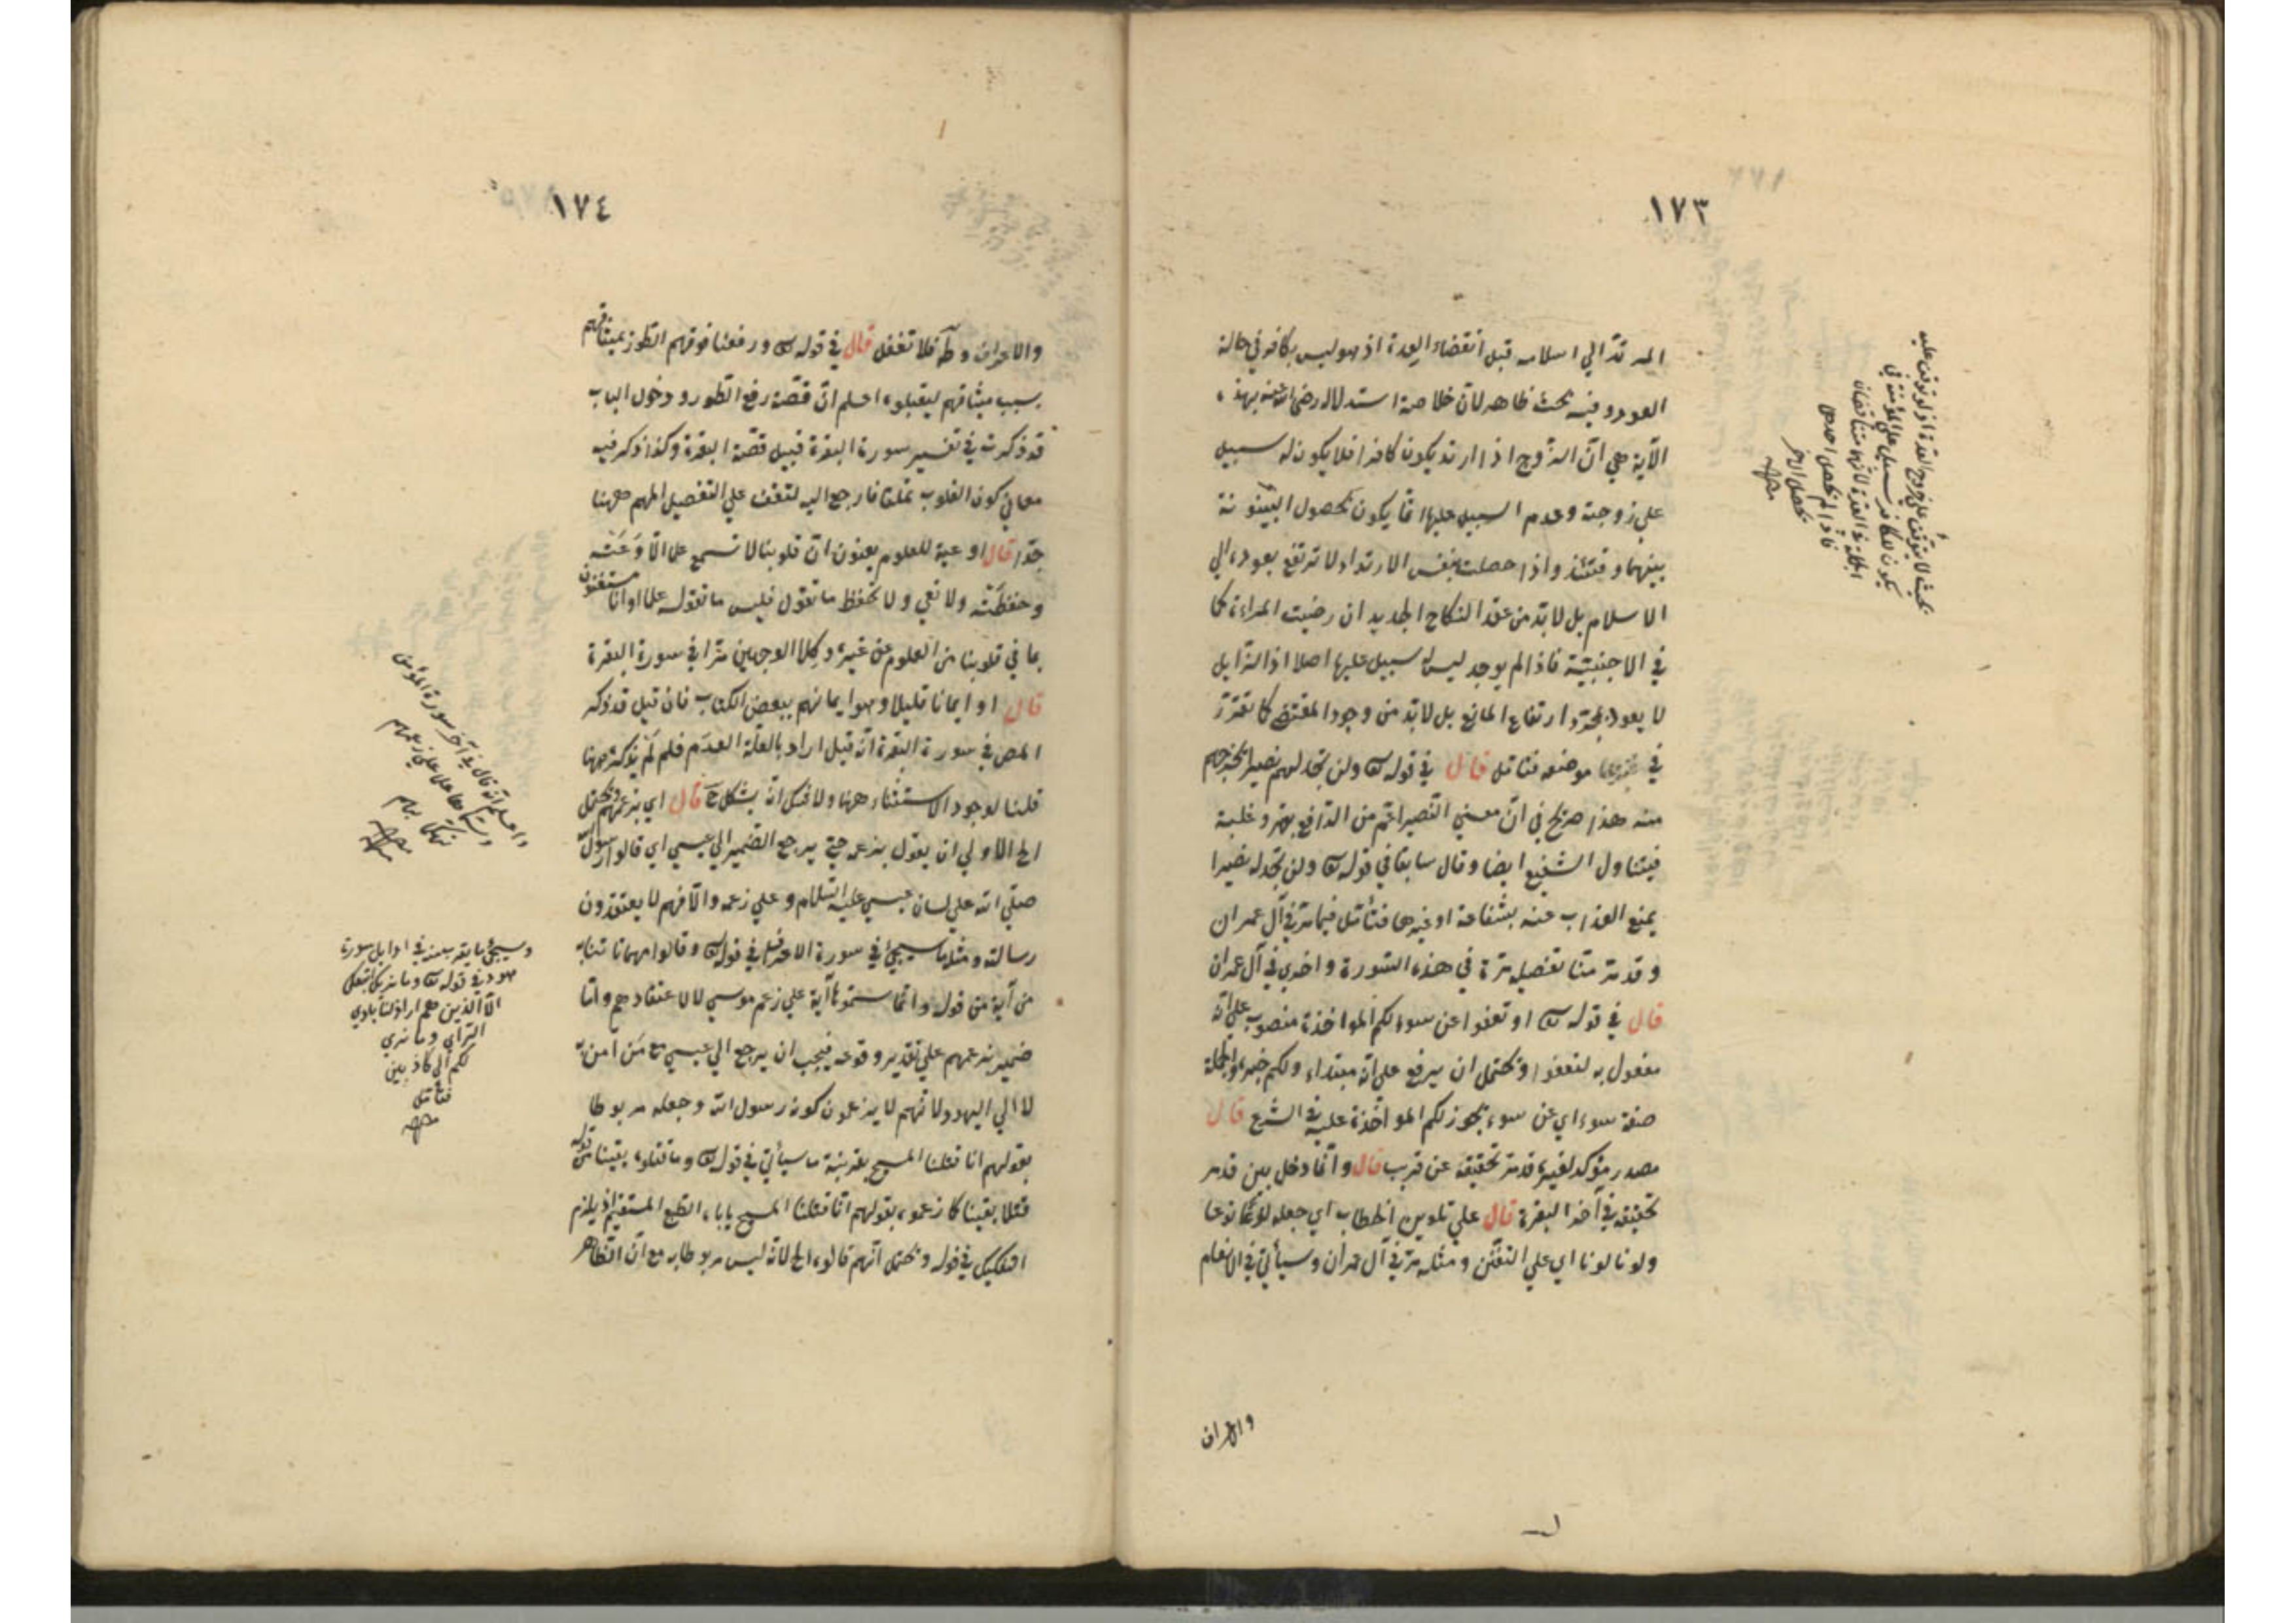 ١٧٣
المرتد الي اسلامه قبل انقضاء العدة اذ هو ليس بكافر في حالة
العود وفيه بحث ظاهر لان خلاصة استدلاله رضي الله عنه بهذه
الآية هي ان الزوج اذا ارتد يكون كافرا فلا يكون له سبيل
علي زوجته وعدم السبيل عليها انما يكون بحصول البينونة
بينهما وقتئذ واذا حصلت بنفس الارتداد لا ترتفع بعوده الي
الاسلام بل لا بد من عقد النكاح الجديد ان رضيت المراءة كما
في الاجنبية فاذا لم يوجد ليس له سبيل عليها اصلا اذ الزايل
لا يعود بمجرد ارتفاع المانع بل لا بد من وجود المقتضي كما تقرر
في موضعه فتأمل قال في قوله تع ولن تجد لهم نصيرا يخرجهم
منه هذا صريح في ان معني النصير اعم من الدافع بقهر وغلبة
فيتناول الشفيع ايضا وقال سابقا في قوله تع ولن تجد له نصيرا
يمنع العذاب عنه بشفاعة او غيرها فتأمل فيما مر في آل عمران
وقد مر منا تفصيله مرة في هذه السورة واخري في آل عمران
قال في قوله تع او تعفوا عن سوء لكم المواخذة منصوب علي انه
مفعول به لتعفوا ويحتمل ان يرفع علي انه مبتداء ولكم خبره والجملة
صفة سوء اي عن سوء يجوز لكم المواخذة عليه في الشرع قال
مصدر مؤكد لغيره قد مر تحقيقه عن قريب قال وانما دخل بين قد مر
تحقيقه في آخر البقرة قال علي تلوين الخطاب اي جعله نوعا
ولونا لونا اي علي التفنن ومثله مر في آل عمران وسيأتي في الانعام
والاعراف
بحيث لا يتوقف علي خروج العدة اذ لو توقف عليه
يكون للكافر سبيل علي المؤمنة في
الجملة في العدة لانهما متناقضان
فاذا لم يحصل احدهما
يحصل الآخر
منه
١٧٤
والاعراف وطه فلا تغفل قال في قوله تع ورفعنا فوقهم الطور بميثاقهم
بسبب ميثاقهم ليقبلوه اعلم ان قصة رفع الطور ودخول الباب
قد ذكرت في تفسير سورة البقرة قبيل قصة البقرة وكذا ذكر فيه
معاني كون القلوب غلفا فارجع اليه لتقف علي التفصيل المهم ههنا
جدا قال اوعية للعلوم يعنون ان قلوبنا لا تسمع علما الا وعته
وحفظته ولا تعي ولا تحفظ ما تقول فليس ما تقوله علما او انا مستغنون
بما في قلوبنا من العلوم عن غيره وكلا الوجهين مرا في سورة البقرة
قال او ايمانا قليلا وهو ايمانهم ببعض الكتاب فان قيل قد ذكر
المص في سورة البقرة انه قيل اراد بالقلة العدم فلم لم يذكره ههنا
قلنا لوجود الاستثناء ههنا ولا يخفي انه يشكل ح قال اي بزعمهم ويحتمل
الخ الاولي ان يقول بزعمه حتي يرجع الضمير الي عيسي اي قالوا رسول
صلي الله علي لسان عيسي عليه السلام وعلي زعمه والا فهم لا يعتقدون
رسالته ومثله ما سيجئ في سورة الاعراف في قوله تع وقالوا مهما تأتنا به
من آية من قوله وانما سموها آية علي زعم موسي لا لاعتقادهم واما
ضمير بزعمهم علي تقدير وقوعه فيجب ان يرجع الي عيسي مع من آمن به
لا الي اليهود لانهم لا يزعمون كونه رسول الله وجعله مربوطا
بقولهم انا قتلنا المسيح بقرينة ما سيأتي في قوله تع وما قتلوه يقينا من قوله
قتلا يقينا كما زعموه بقولهم انا قتلنا المسيح يأباه الطبع المستقيم اذ يلزم
التفكيك في قوله ويحتمل انهم قالوه الخ لانه ليس مربوطا به مع ان الظاهر
واعلم انه قال في آخر سورة المؤمن
منه
وسيجئ ما يقرب منه في اوايل سورة
هود في قوله تع وما نريك اتبعك
الا الذين هم اراذلنا بادي
الرأي وما نري
لكم الي كاذبين
فتأمل
منه